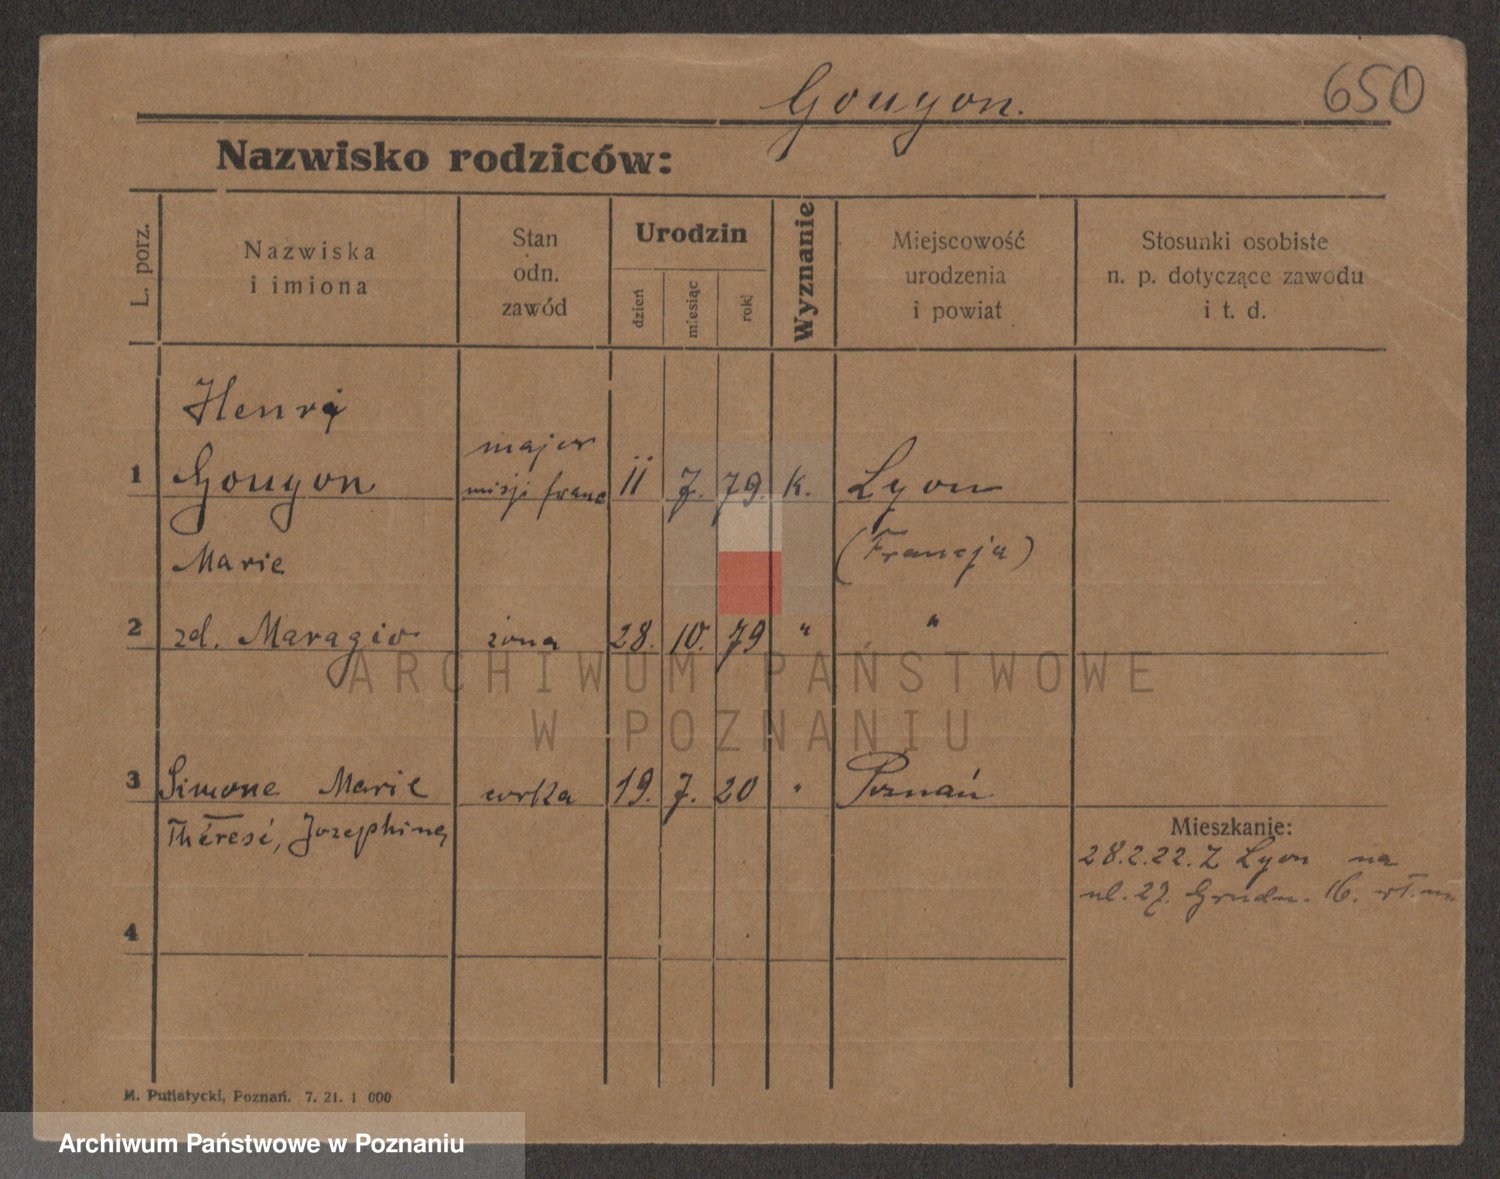 Gougon.
650
Nazwisko rodziców:
L. porz.
Nazwiska
i imiona
Stan
odn.
zawód
Urodzin
dzień
miesiąc
rok
Wyznanie
Miejscowość
urodzenia
i powiat
Stosunki osobiste
n. p. dotyczące zawodu
i t. d.
Henri
major
1 Gougon misji franc 11 7. 79. k. Lyon
Marie (Francja)
2 zd. Maragio żona 28. 10. 79 " "
3 Simone Marie córka 19. 7. 20 " Poznań
Thérese, Jozephine
Mieszkanie:
28.2.22. Z Lyon na
ul. 27. Grudn. 16.
4
M. Putiatycki, Poznań. 7. 21. 1 000
ARCHIWUM PAŃSTWOWE
W POZNANIU
Archiwum Państwowe w Poznaniu